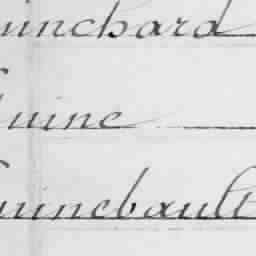 uinchard
Guine
Guinebault